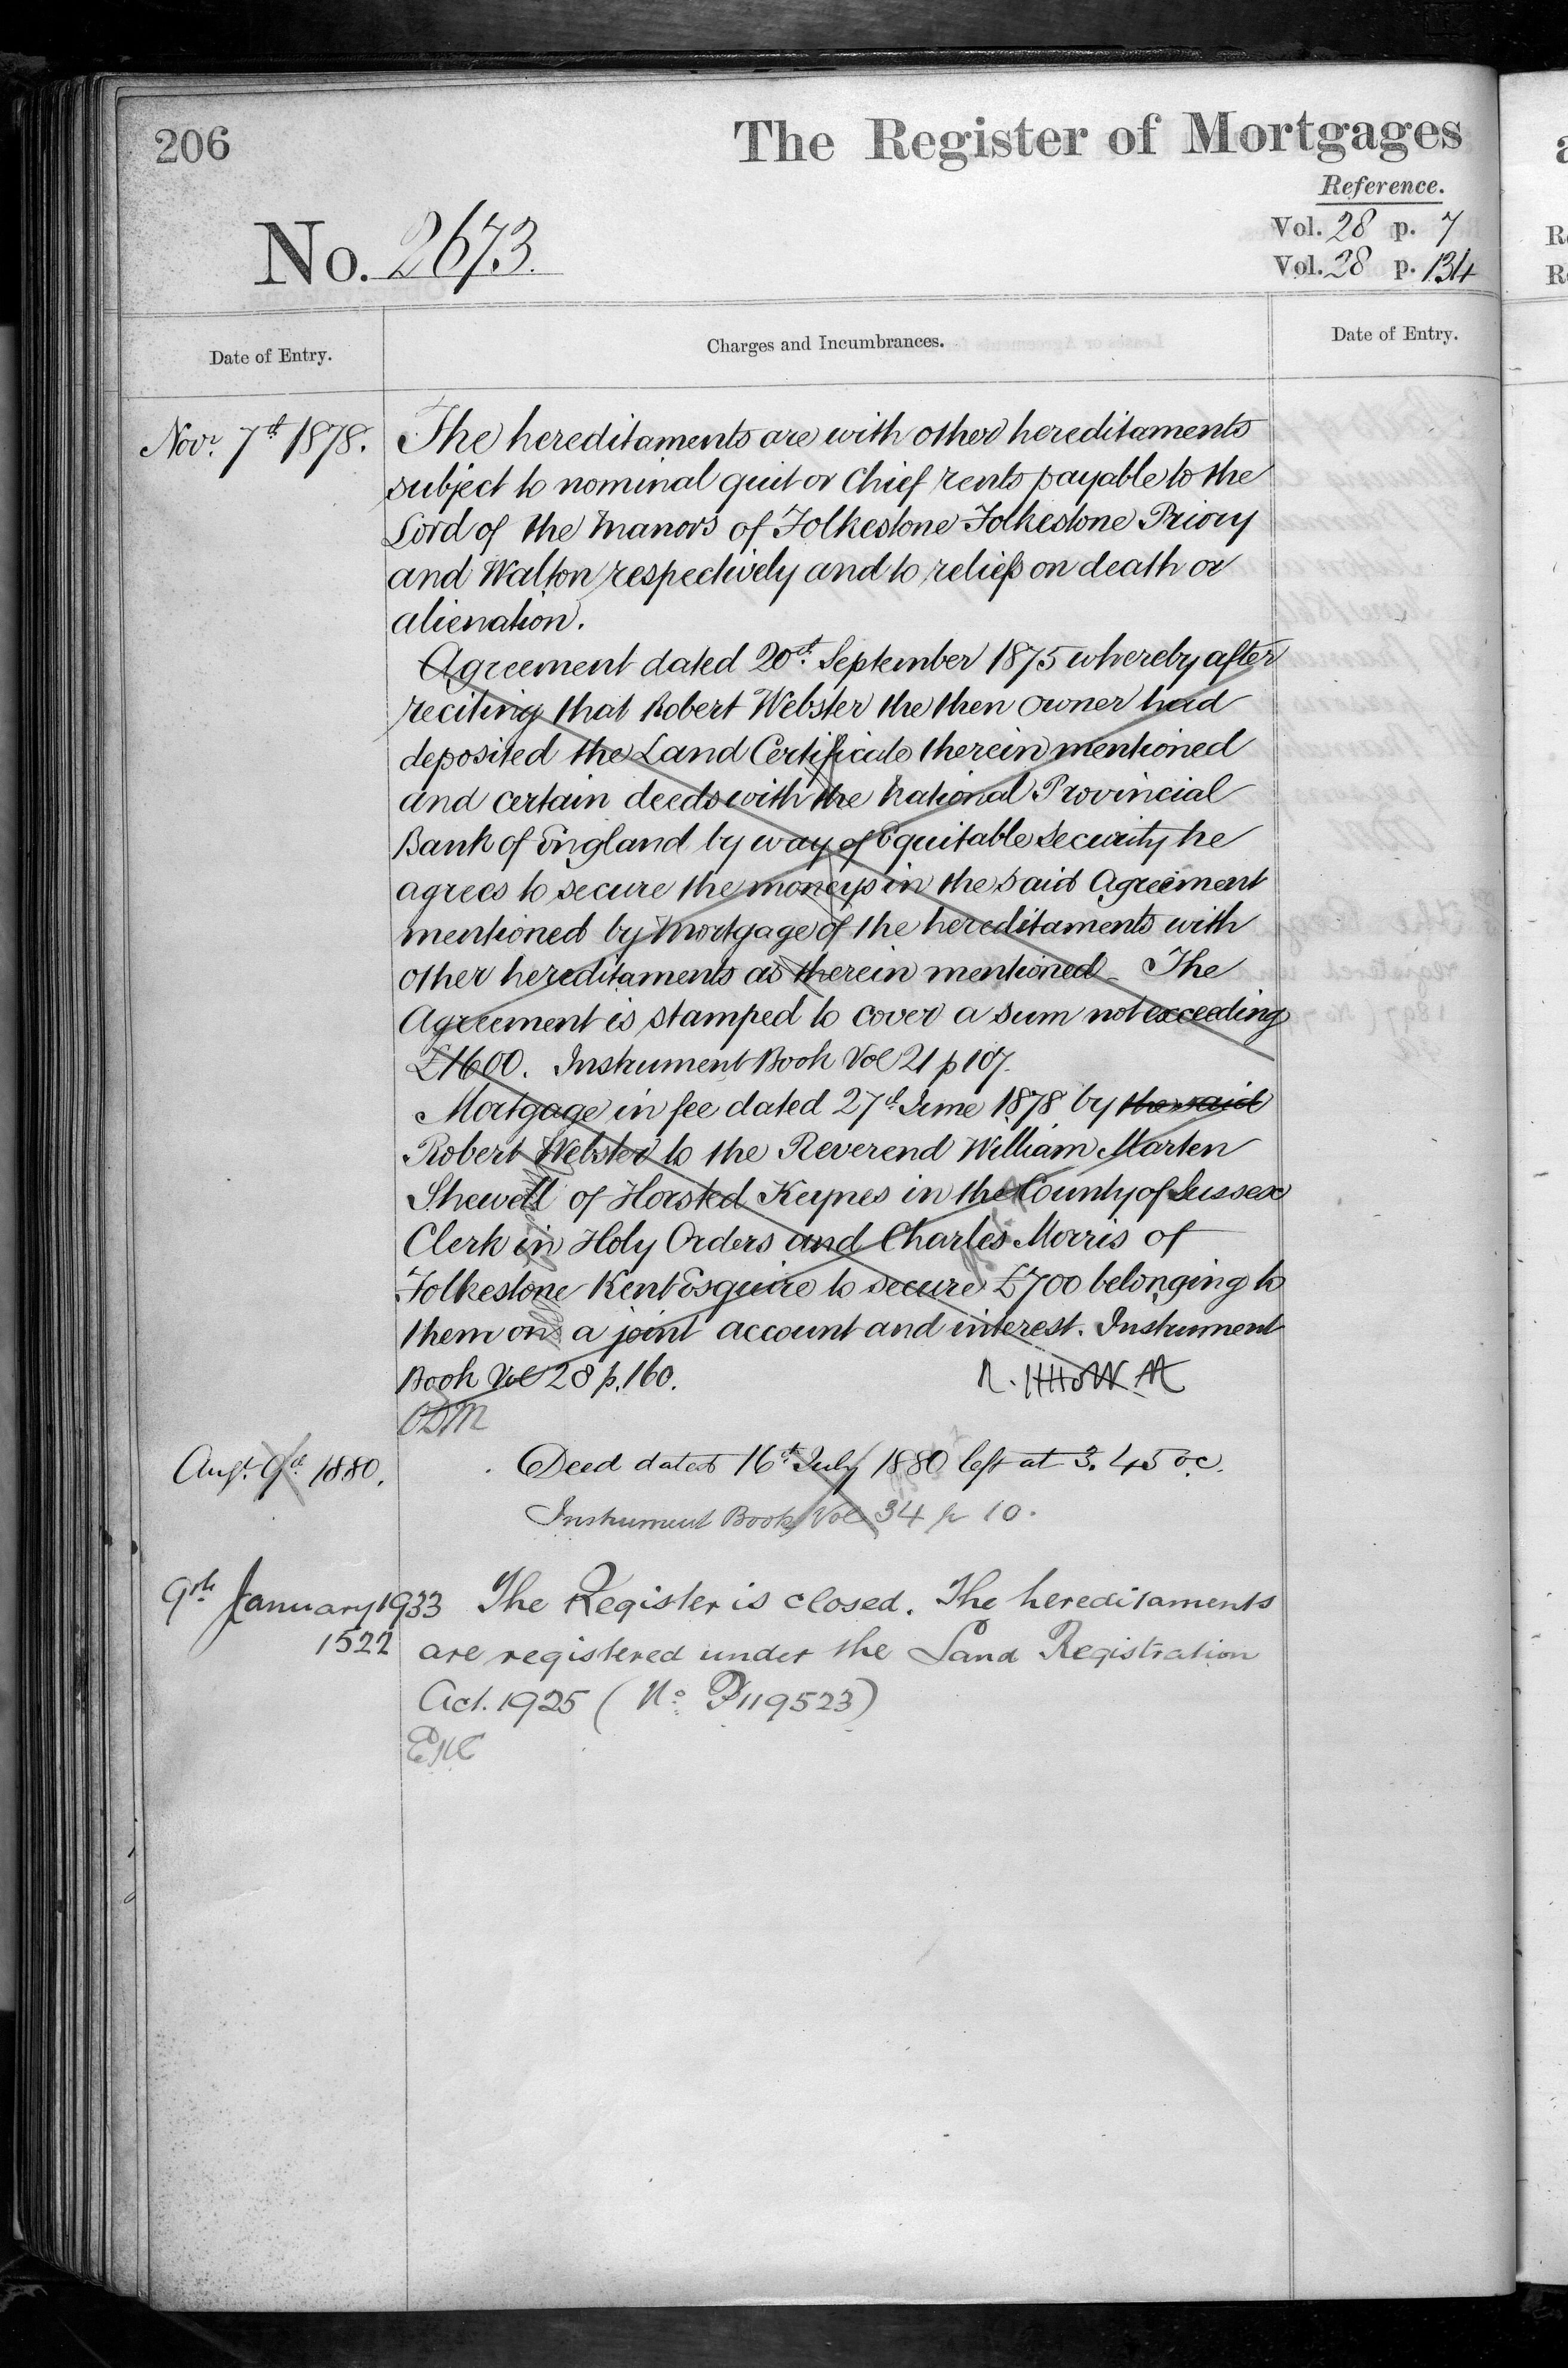 206
The Register of Mortgages
Reference.
No. 2673.
Vol. 28 p. 7
Vol. 28 p. 134
Date of Entry.
Charges and Incumbrances.
Date of Entry.
Novr. 7th 1878.
The hereditaments are with other hereditaments
subject to nominal quit or Chief rents payable to the
Lord of the Manors of Folkestone Folkestone Priory
and Walton respectively and to reliefs on death or
alienation.
Agreement dated 20th September 1875 whereby after
reciting that Robert Webster the then owner had
deposited the Land Certificate therein mentioned
and certain deeds with the National Provincial
Bank of England by way of Equitable Security he
agrees to secure the moneys in the said Agreement
mentioned by Mortgage of the hereditaments with
other hereditaments as therein mentioned - The
Agreement is stamped to cover a sum not exceeding
£1600. Instrument Book Vol 21 p 107.
Mortgage in fee dated 27th June 1878 by the said
Robert Webster to the Reverend William Marten
Shewell of Horsted Keynes in the County of Sussex
Clerk in Holy Orders and Charles Morris of
Folkestone Kent Esquire to secure £700 belonging to
them on a joint account and interest. Instrument
Book Vol 28 p. 160.
Augt. 9th 1880.
Deed dated 16th July 1880 left at 3.45 oc.
Instrument Book Vol 34 p 10.
9th January 1933
1522
The Register is closed. The hereditaments
are registered under the Land Registration
Act. 1925 (No. P119523)